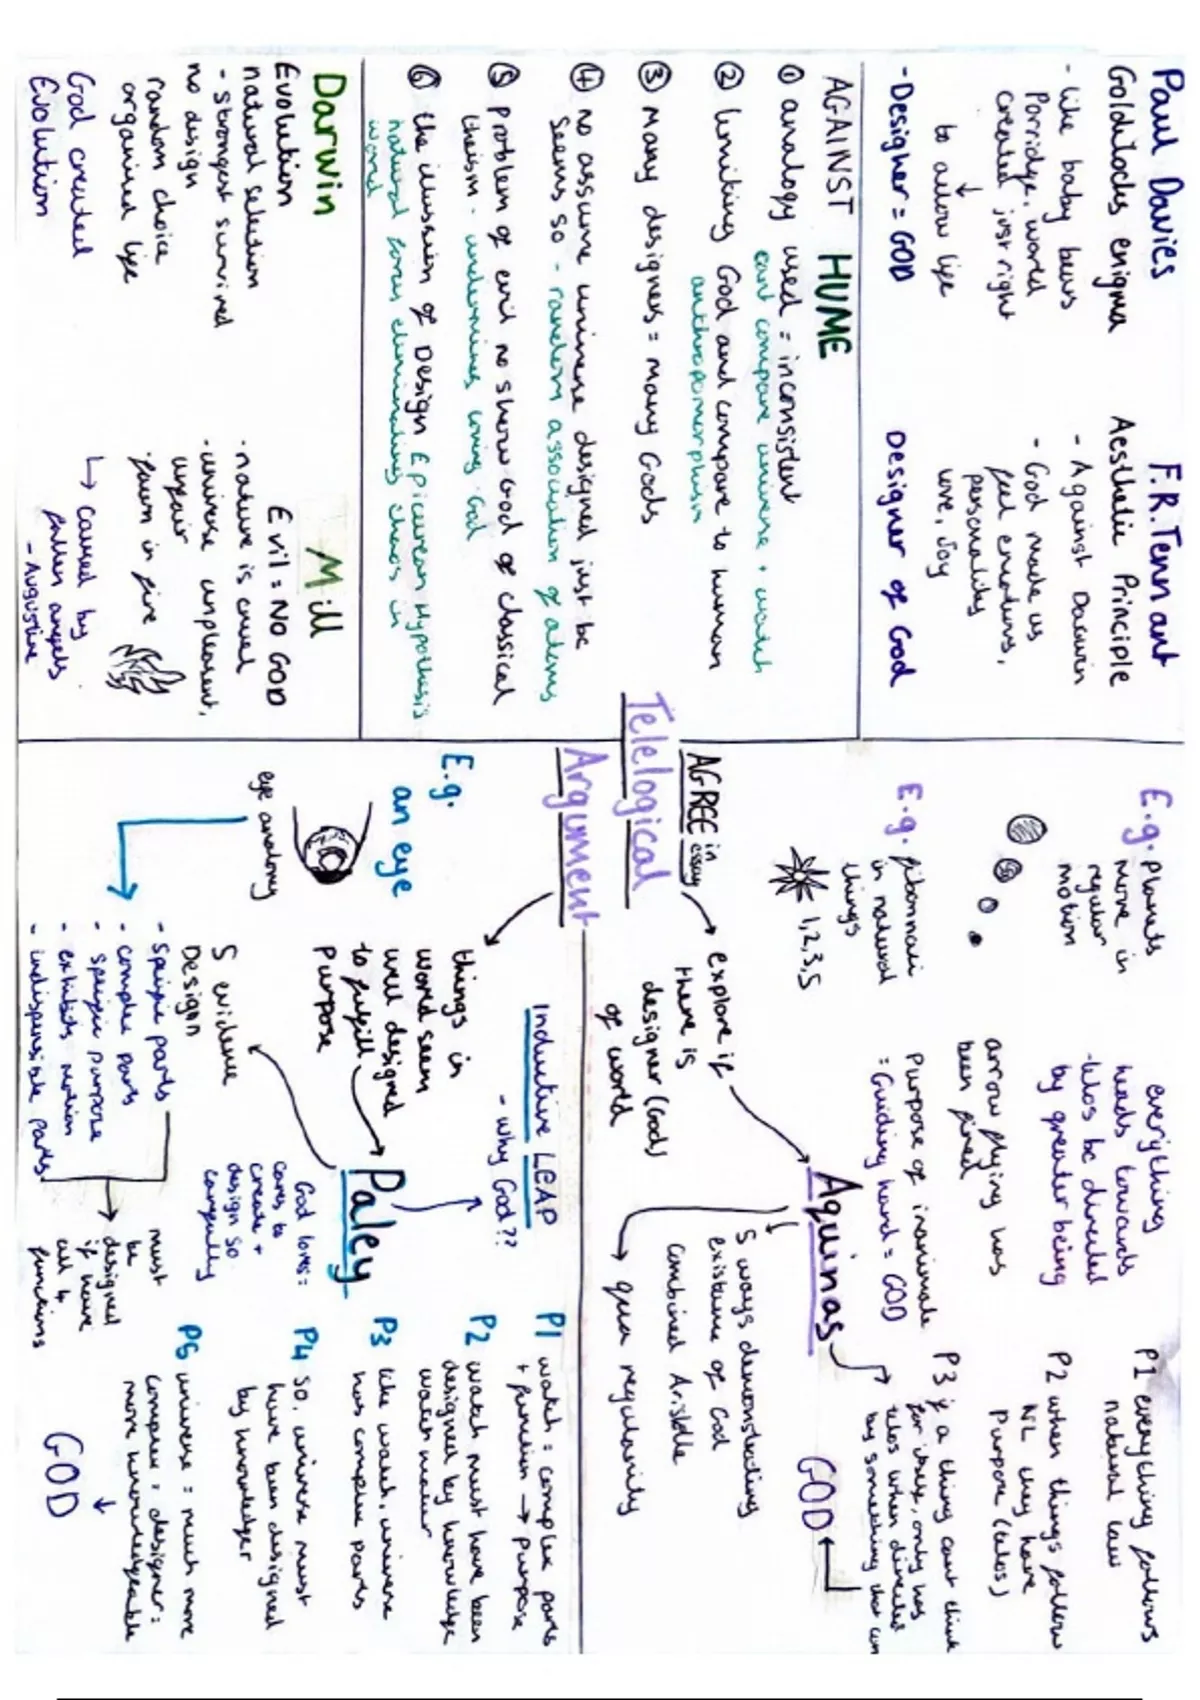 Paul Davies
Goldilocks enigma
- like baby bears
Porridge, world
created just right
↓
to allow life
- Designer = GOD
F.R. Tennant
Aesthetic Principle
- Against Darwin
- God made us
feel emotions,
personality
love, Joy
Designer of God
AGAINST HUME
① analogy used = inconsistent
cant compare universe + watch
② limiting God and compare to human
anthropomorphism
③ Many designers = Many Gods
④ no assume universe designed just be
seems so - random association of atoms
⑤ problem of evil no show God of classical
theism - undermines loving God
⑥ the illusion of Design Epicurean Hypothesis
natural forces eliminates chaos in
world
Darwin
Evolution
natural selection
- strongest survived
no design
random choice
organised life
God created
Evolution
Mill
Evil = NO GOD
· nature is cruel
· universe unpleasant,
unfair
· fawn in fire
↳ caused by
fallen angels
- Augustine
Telelogical
Argument
E.g. planets
move in
regular
motion
E.g. fibonnaci
in natural
things
1,2,3,5
everything
heads towards
telos be directed
by greater being
arrow flying has
been fired
purpose of inanimate
= Guiding hand = GOD
P1 everything follows
natural law
P2 when things follow
NL they have
Purpose (telos)
P3 if a thing cant think
for itself, only has
telos when directed
by something that can
GOD
AGREE in essay
explore if
there is
designer (God)
of world
Aquinas
5 ways demonstrating
existence of God
combined Aristotle
qua regularity
things in
world seem
well designed
to fulfill
purpose
Inductive LEAP
- why God??
Paley
E.g.
an eye
eye anatomy
5 evidence
Design
- specific parts
- complex parts
- specific purpose
- exhibits motion
- indispensible parts
God loves =
cares to
create +
design so
carefully
must
be
designed
if have
all 4
functions
P1 watch = complex parts
+ function → purpose
P2 watch must have been
designed by knowledge
watch maker
P3 like watch, universe
has complex parts
P4 so, universe must
have been designed
by knowledger
P5 universe = much more
complex, designer =
more knowledgeable
↓
GOD